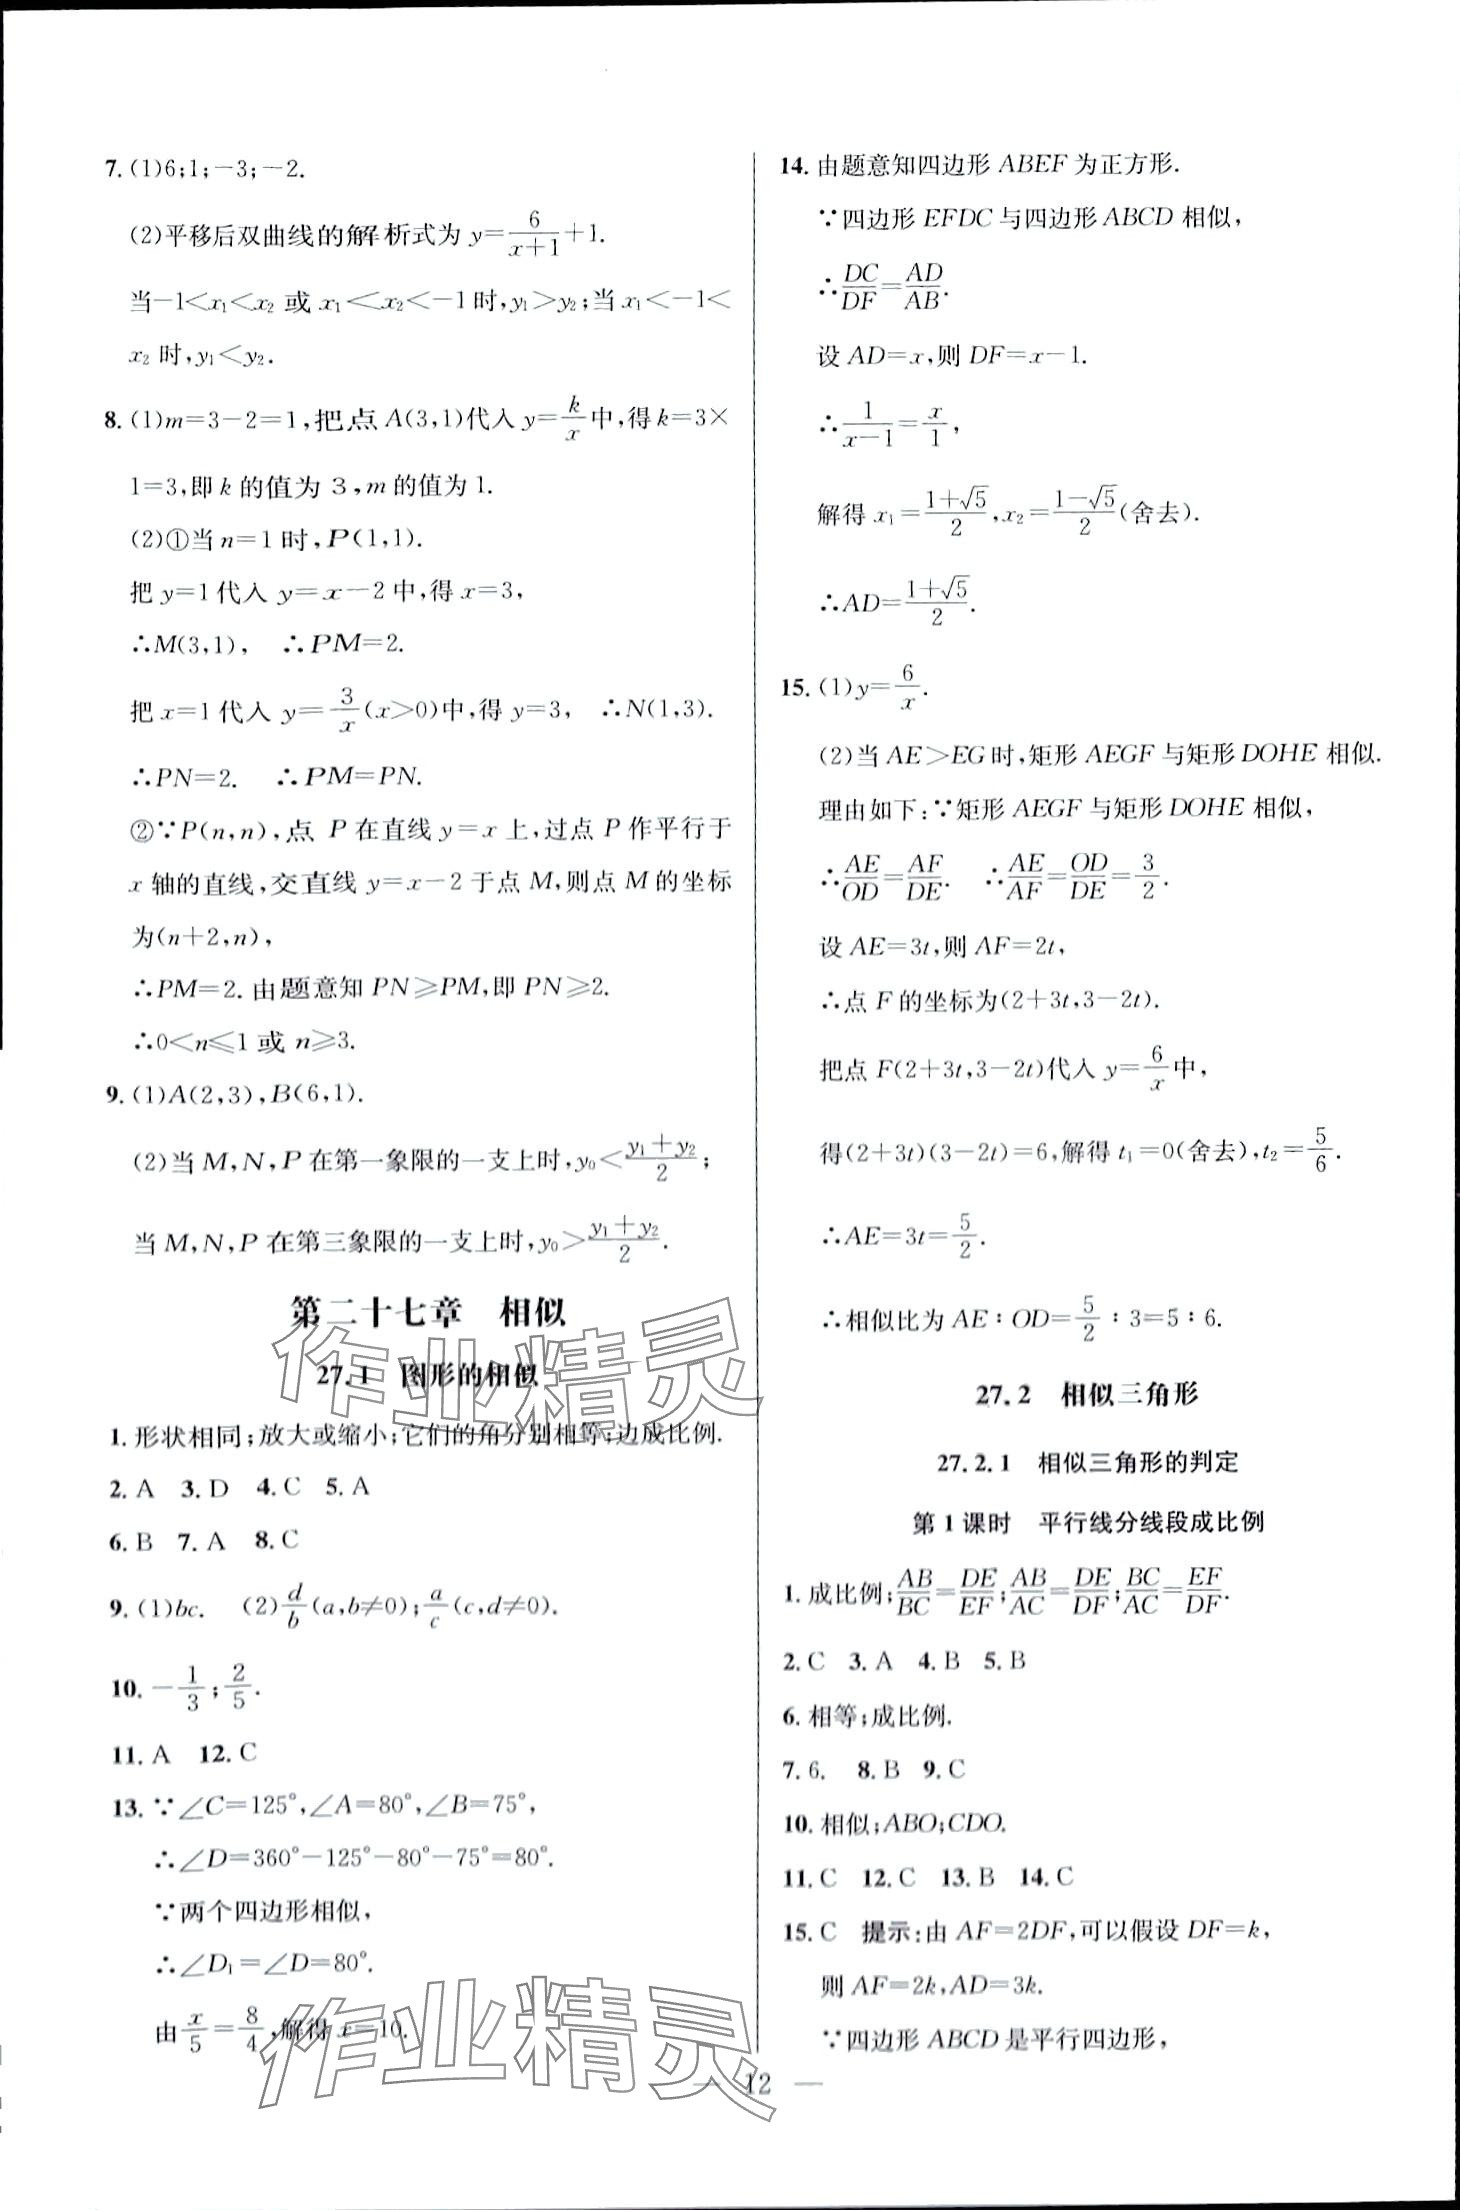 7. (1)6;1;−3;−2.
(2)平移后双曲线的解析式为 y=6/(x+1)+1.
当−1<x₁<x₂ 或 x₁<x₂<−1时,y₁>y₂;当 x₁<−1<
x₂ 时,y₁<y₂.
8. (1)m=3−2=1,把点 A(3,1)代入 y=k/x中,得k=3×
1=3,即 k 的值为 3,m的值为1.
(2)①当 n=1时,P(1,1).
把 y=1代入 y=x−2中,得 x=3,
∴M(3,1), ∴PM=2.
把 x=1代入 y=3/x(x>0)中,得 y=3, ∴N(1,3).
∴PN=2. ∴PM=PN.
②∵P(n,n),点 P 在直线 y=x 上,过点 P 作平行于
x 轴的直线,交直线 y=x−2于点 M,则点 M 的坐标
为(n+2,n),
∴PM=2. 由题意知 PN≥PM,即 PN≥2.
∴0<n≤1 或 n≥3.
9. (1)A(2,3),B(6,1).
(2)当 M,N,P 在第一象限的一支上时,y₀<(y₁+y₂)/2;
当 M,N,P 在第三象限的一支上时,y₀>(y₁+y₂)/2.
第二十七章 相似
27.1 图形的相似
1. 形状相同;放大或缩小;它们的角分别相等;边成比例.
2. A 3. D 4. C 5. A
6. B 7. A 8. C
9. (1)bc. (2)d/b(a,b≠0);a/c(c,d≠0).
10. −1/3;2/5.
11. A 12. C
13. ∵∠C=125°,∠A=80°,∠B=75°,
∴∠D=360°−125°−80°−75°=80°.
∵两个四边形相似,
∴∠D₁=∠D=80°.
由 x/5=8/4,解得 x=10.
14. 由题意知四边形 ABEF 为正方形.
∵四边形 EFDC 与四边形 ABCD 相似,
∴DC/DF=AD/AB.
设 AD=x,则 DF=x−1.
∴1/(x−1)=x/1,
解得 x₁=(1+√5)/2,x₂=(1−√5)/2(舍去).
∴AD=(1+√5)/2.
15. (1)y=6/x.
(2)当 AE>EG时,矩形 AEGF 与矩形 DOHE 相似.
理由如下:∵矩形 AEGF 与矩形 DOHE 相似,
∴AE/OD=AF/DE. ∴AE/AF=OD/DE=3/2.
设 AE=3t,则 AF=2t,
∴点 F 的坐标为(2+3t,3−2t).
把点 F(2+3t,3−2t)代入 y=6/x中,
得(2+3t)(3−2t)=6,解得 t₁=0(舍去),t₂=5/6.
∴AE=3t=5/2.
∴相似比为 AE:OD=5/2:3=5:6.
27.2 相似三角形
27.2.1 相似三角形的判定
第1课时 平行线分线段成比例
1. 成比例;AB/BC=DE/EF;AB/AC=DE/DF;BC/AC=EF/DF.
2. C 3. A 4. B 5. B
6. 相等;成比例.
7. 6. 8. B 9. C
10. 相似;ABO;CDO.
11. C 12. C 13. B 14. C
15. C 提示:由 AF=2DF,可以假设 DF=k,
则 AF=2k,AD=3k.
∵四边形 ABCD 是平行四边形,
— 12 —
作业精灵
作业精灵